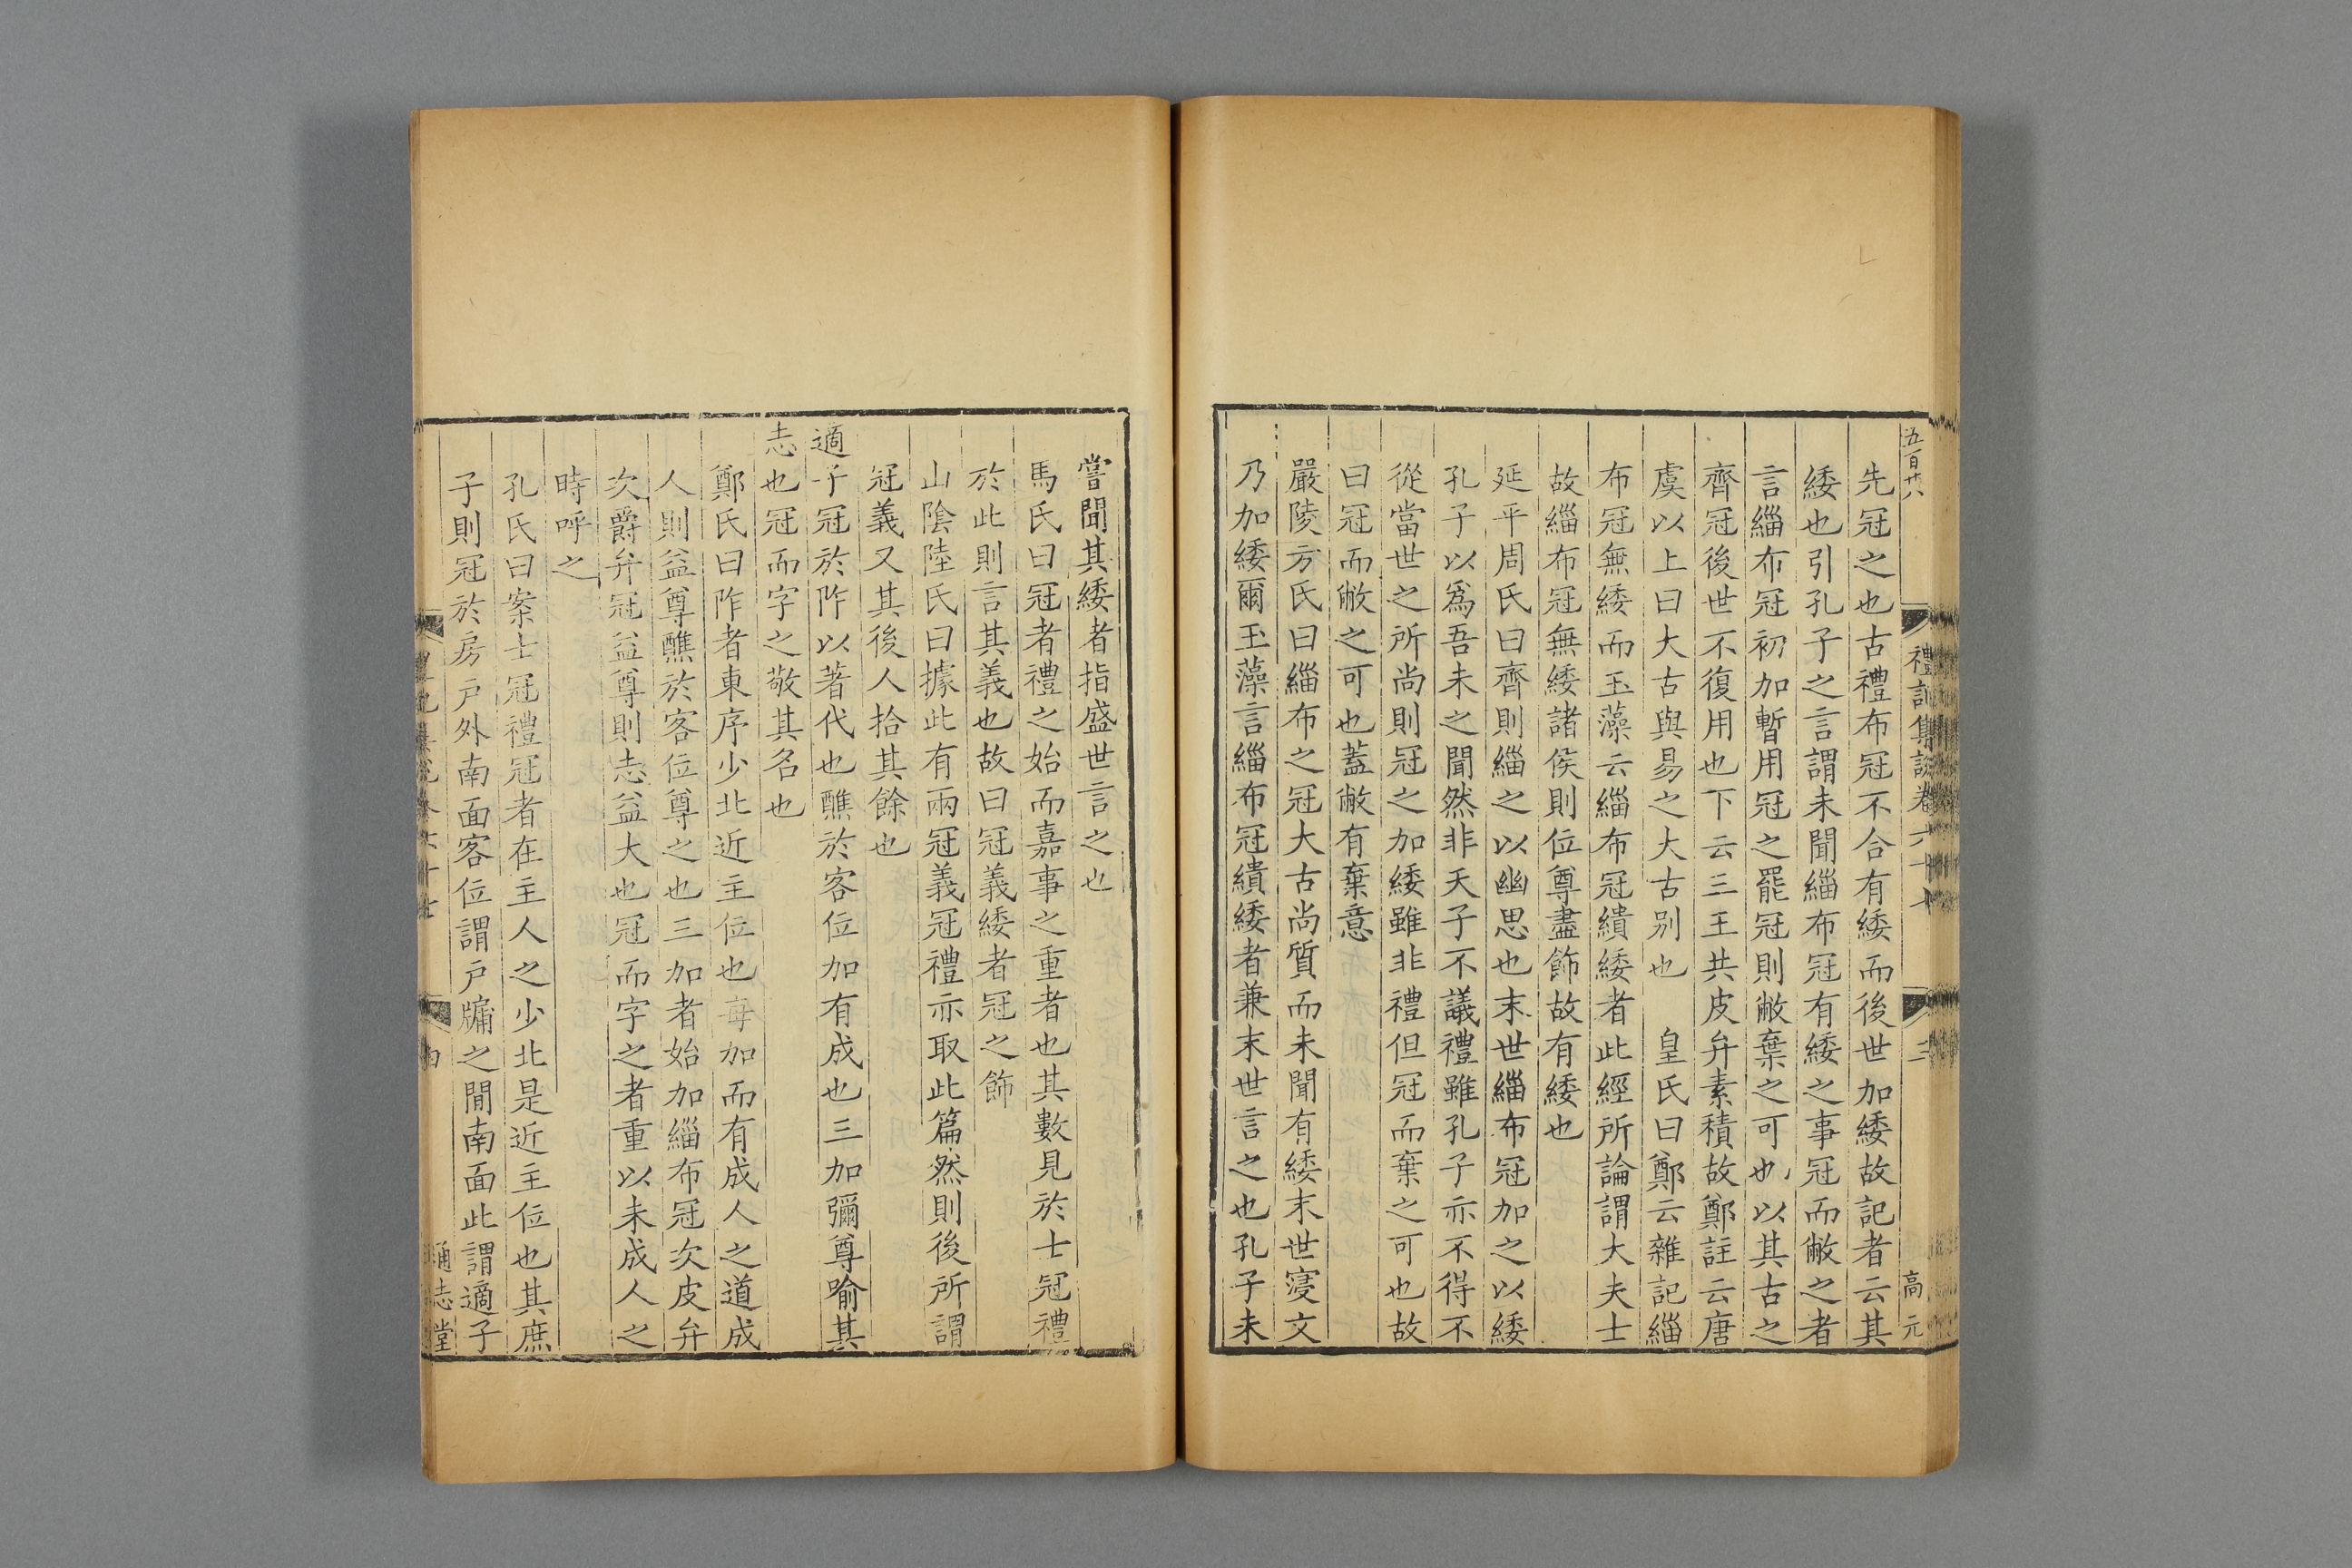 五百廿六
禮記集說卷六十七
三
高元
先冠之也古禮布冠不合有緌而後世加緌故記者云其
緌也引孔子之言謂未聞緇布冠有緌之事冠而敝之者
言緇布冠初加暫用冠之罷冠則敝棄之可也以其古之
齊冠後世不復用也下云三王共皮弁素積故鄭註云唐
虞以上曰大古與易之大古别也 皇氏曰鄭云雜記緇
布冠無緌而玉藻云緇布冠繢緌者此經所論謂大夫士
故緇布冠無緌諸侯則位尊盡飾故有緌也
延平周氏曰齊則緇之以幽思也末世緇布冠加之以緌
孔子以爲吾未之聞然非天子不議禮雖孔子亦不得不
從當世之所尚則冠之加緌雖非禮但冠而棄之可也故
曰冠而敝之可也蓋敝有棄意
嚴陵方氏曰緇布之冠大古尚質而未聞有緌末世寖文
乃加緌爾玉藻言緇布冠繢緌者兼末世言之也孔子未
嘗聞其緌者指盛世言之也
馬氏曰冠者禮之始而嘉事之重者也其數見於士冠禮
於此則言其義也故曰冠義緌者冠之飾
山陰陸氏曰據此有兩冠義冠禮亦取此篇然則後所謂
冠義又其後人拾其餘也
適子冠於阼以著代也醮於客位加有成也三加彌尊喻其
志也冠而字之敬其名也
鄭氏曰阼者東序少北近主位也每加而有成人之道成
人則益尊醮於客位尊之也三加者始加緇布冠次皮弁
次爵弁冠益尊則志益大也冠而字之者重以未成人之
時呼之
孔氏曰案士冠禮冠者在主人之少北是近主位也其庶
子則冠於房戶外南面客位謂戶牖之閒南面此謂適子
通志堂